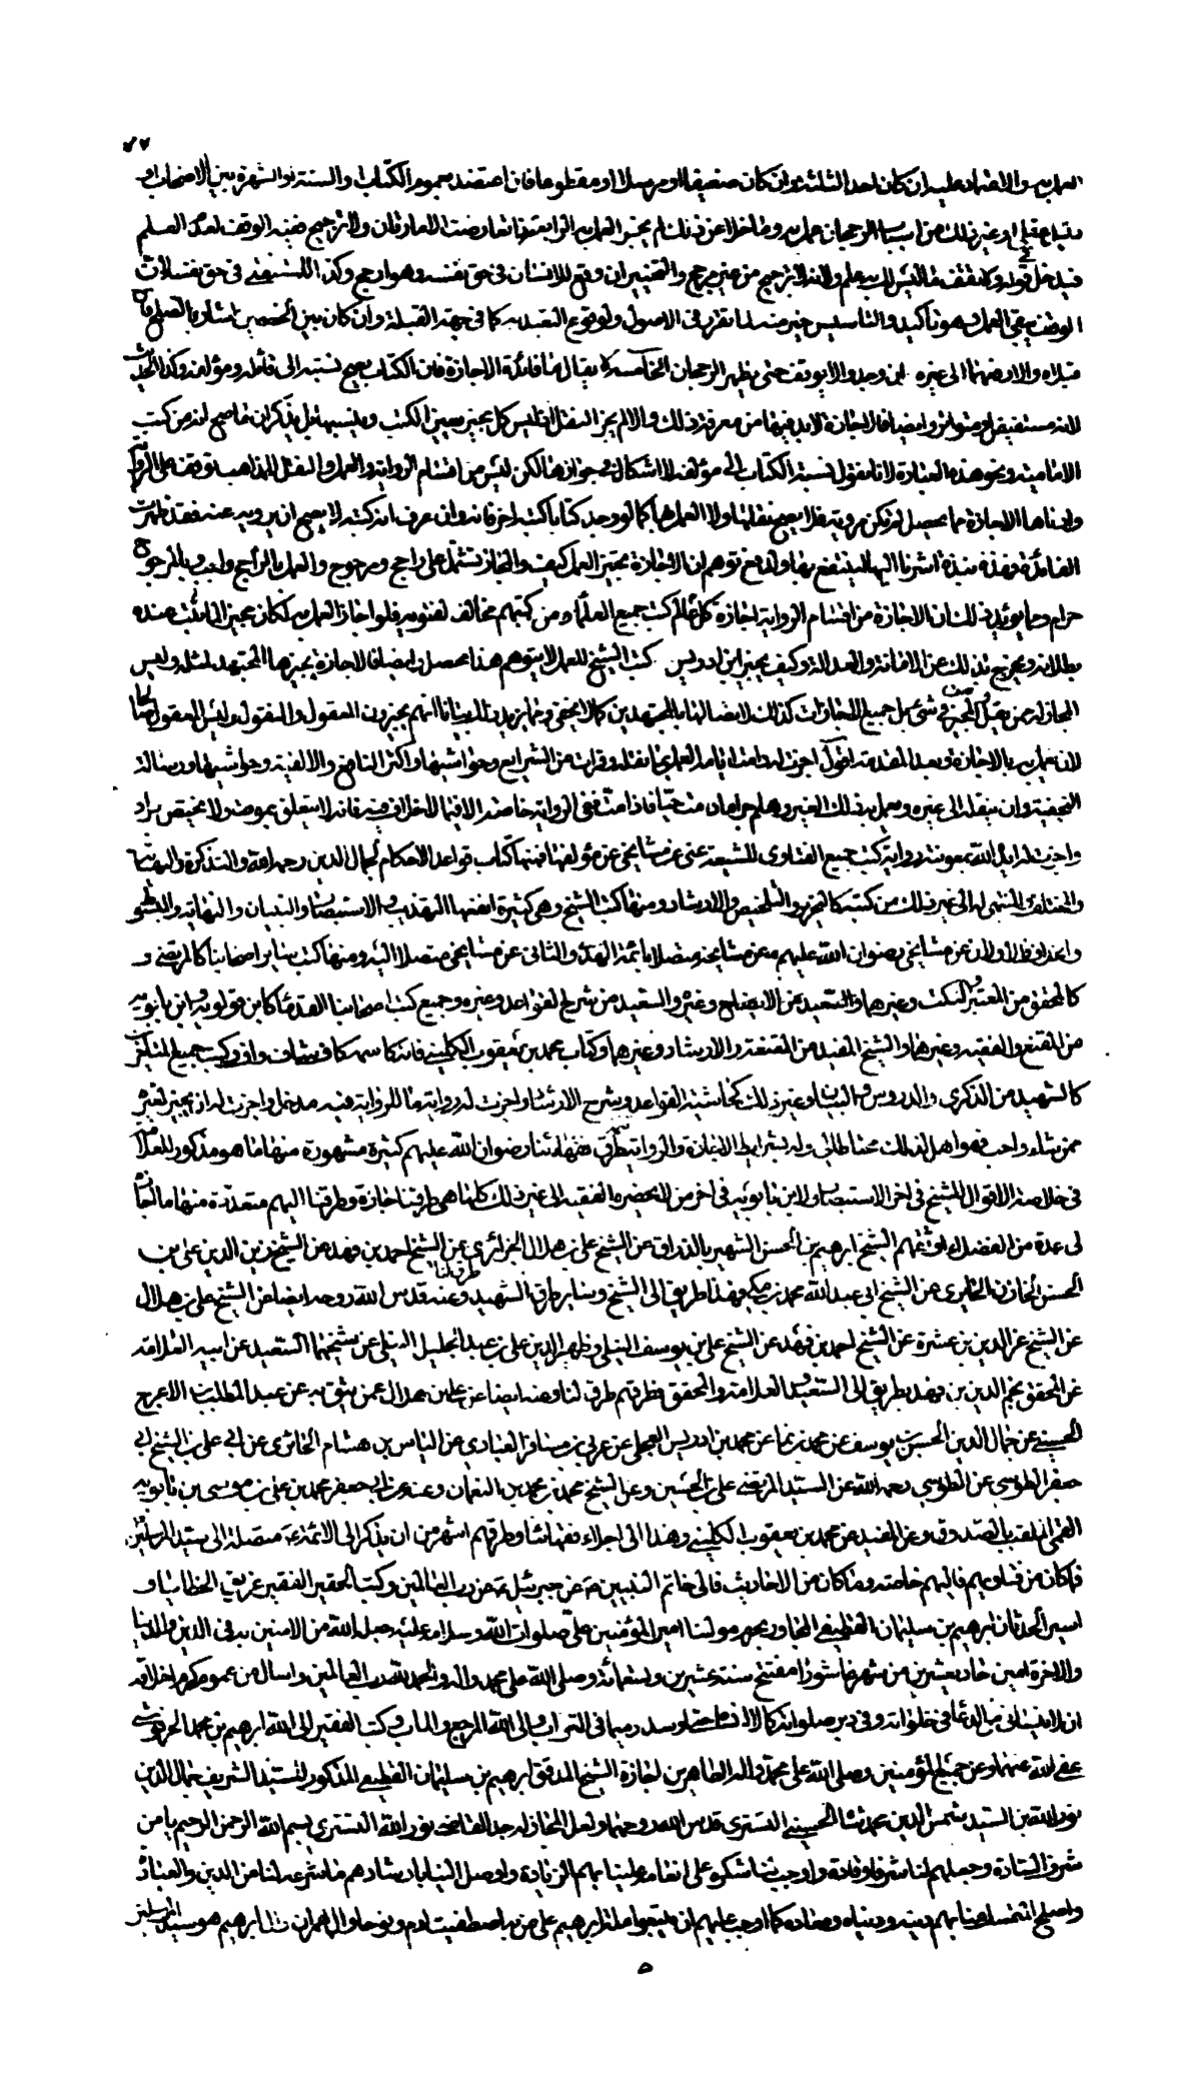 ٧٧
العمل به والاعتماد عليه ان كان احد الثلثة وان كان ضعيفا او مرسلا او مقطوعا فان اعتضد بعموم الكتاب والسنة او الشهرة بين الاصحاب او
دليل عقلي او غير ذلك من اسباب الرجحان عمل به وما خلا عن ذلك لم يجز العمل به الرابعة اذا تعارضت الامارتان ولا ترجيح ففيه الوقف لعدم العلم
فيدخل في قوله ولا تقف ما ليس لك به علم والترجيح من غير مرجح والتخيير ان وقع للانسان في حق نفسه وهو ارجح وكذا للمستفتي في حق نفسه لان
الوقف نفي العمل وهو تاكيد والتاسيس خير منه لما تقرر في الاصول ولوقوع التعبد به كما في جهة القبلة وان كان بين الخصمين اشار بالصلح فان
قبلاه والا رفعهما الى غيره ان وجد والا يوقف حتى يظهر الرجحان الخامسة لا يقال ما فائدة الاجازة فان الكتاب يصح نسبته الى قائله ومؤلفه وكذا الحديث
لانه مستفيض او متواتر وايضا فالاجازة لابد فيها من معرفة ذلك والا لم يجز النقل اذ ليس كل مجيز يعين الكتب وينسبها بل يذكر ان ما صح انه من كتب
الامامية ونحو هذه العبارة لانا نقول نسبة الكتاب الى مؤلفه لا اشكال في جوازها لكن ليس من اقسام الرواية والعمل والنقل للمذاهب توقف على الرواية
وادناها الاجازة فما لم يحصل لم تكن مروية فلا يصح نقلها ولا العمل بها كما لو وجد كتابا كتبه اخر فانه وان عرف انه كتبه لا يصح ان يرويه عنه فقد ظهرت
الفائدة وهذه نبذة اشرنا اليها لينتفع بها ولدفع توهم ان الاجازة تجيز العمل كيف والمجاز تشتمل على راجح ومرجوح والعمل بالراجح واجب وبالمرجوح
حرام ومما يؤيد ذلك ان الاجازة من اقسام الرواية اجازة كل عالم كتب جميع العلماء ومن كتبهم مخالف لفتويه فلو اجاز العمل به لكان مجيزا لما ثبت عنده
بطلانه ويخرج بذلك عن الامانة والعدالة وكيف يجيز ابن ادريس كتب الشيخ للعمل لا يتوهم هذا محصل وايضا فالاجازة يجيزها المجتهد لمثله وليس
المجاز له ممن يقبل المجيز في شيء بل جميع الاجازات كذلك لاتصالها بالمجتهدين كما لا يخفى ومما يزيدك بيانا انهم يجيزون المعقول والمنقول وليس المعقول مما
لان عمل به بالاجازة وبعد المقدمة اقول اجزت له دامت ايامه العمل بما نقله وقراه من الشرايع وحواشيها واكثر النافع والالفية وحواشيها ورسالة
النجفية وان ينقله الى غيره ويعمل به ذلك الغير وهلم جرا ما دمت حيا فاذا مت ففي الرواية خاصة الا فيما لا خلاف فيه فانه لا يتعلق بموت ولا يختص براد
واجزت له ايده الله بمعونته رواية كتب جميع الفتاوى للشيعة عني عن مشايخي عن مؤلفيها فمنها كتاب قواعد الاحكام لجمال الدين رحمه الله والتذكرة والنهاية
والمختلف والمنتهى الى غير ذلك من كتبه كالتحرير والتلخيص والارشاد ومنها كتب الشيخ وهي كثيرة فمنها التهذيب والاستبصار والتبيان والنهاية والمبسوط
عن مشايخي رضوان الله عليهم عن مشايخه متصلا بائمة الهدى والثاني عن مشايخي متصلا اليه ومنها كتب ساير اصحابنا كالمرتضى و
كالمحقق من المعتبر والنكت وغيرهما والسعيد من الايضاح وغيره والسعيد من شرح القواعد وغيره وجميع كتب اصحابنا القدماء كابن قولويه وابن بابويه
من المقنع والفقيه وغيرهما والشيخ المفيد من المقنعة والارشاد وغيرهما وكتاب محمد بن يعقوب الكليني فانه كاسمه كاف شاف واف وكتب جميع المتاخرين
كالشهيد من الذكرى والدروس والبيان وغير ذلك كحاشية القواعد وشرح الارشاد واجزت له رواية ما للرواية فيه مدخل واجزت له ان يجيز لغيره
ممن شاء واحب فهو اهل لذلك محتاطا لي وله بشرايط الاجازة والرواية وطرق فقهائنا رضوان الله عليهم كثيرة مشهورة منها ما هو مذكور للعلامة
في خلاصة الاقوال وللشيخ في اخر الاستبصار ولابن بابويه في اخر من لا يحضره الفقيه الى غير ذلك كلها هي طرقنا اجازة وطرقنا اليهم متعددة منها ما اجازه
لي عدة من الفضلاء اوثقهم الشيخ ابرهيم بن الحسن الشهير بالذراق عن الشيخ علي بن هلال الجزائري عن الشيخ احمد بن فهد عن الشيخ زين الدين علي بن
الحسن الخازن الحايري عن الشيخ ابي عبد الله محمد بن مكي فهذا طريق الى الشيخ وساير طرق الشهيد طرق لنا وعنه قدس الله روحه ايضا عن الشيخ علي بن هلال
عن الشيخ عز الدين بن عشرة عن الشيخ احمد بن فهد عن الشيخ علي بن يوسف النيلي وظهير الدين علي بن عبد الجليل النيلي عن شيخهما السعيد عن ابيه العلامة
عن المحقق نجم الدين بن فهد بطريق الى السعيد والعلامة والمحقق فطرقهم طرق لنا وعنه ايضا عن علي بن هلال عمن يثق به عن عبد المطلب الاعرج
الحسيني عن جمال الدين الحسن بن يوسف عن محمد بن نما عن محمد بن ادريس العجلي عن عربي بن مسافر العبادي عن الياس بن هشام الحائري عن ابي علي بن الشيخ ابي
جعفر الطوسي عن الطوسي رحمه الله عن السيد المرتضى علي بن الحسين وعن الشيخ محمد بن محمد بن النعمان وعنه عن ابي جعفر محمد بن علي بن موسى بن بابويه
القمي الملقب بالصدوق وعن المفيد عن محمد بن يعقوب الكليني وهذا الى اجلاء فقهائنا وطرقهم اشهر من ان يذكر الى الائمة ع متصلة الى سيد المرسلين
فما كان من فتاويهم فاليهم خاصة وما كان من الاحاديث فالى خاتم النبيين ص عن جبرئيل ع عن رب العالمين وكتب الحقير الفقير غريق الخطايا و
اسير الحدثان ابرهيم بن سليمان القطيفي المجاور بحرم مولنا امير المؤمنين علي صلوات الله وسلامه عليه جعله الله من الامنين به في الدين والدنيا
والاخرة امين حادي عشرين من شهر عاشورا مفتتح سنة عشرين وتسعمائة وصلى الله على محمد واله والحمد لله رب العالمين واسال من عموم مكارم اخلاقه
ان لا ينساني من الدعاء في خلواته وفي دبر صلواته والى الله المرجع والماب وكتب الفقير الى الله ابرهيم بن محمد الحرفوشي
عفى الله عنهما وعن جميع المؤمنين وصلى الله على محمد واله الطاهرين اجازة الشيخ المدقق ابرهيم بن سليمان القطيفي المذكور للسيد الشريف جمال الدين
نور الله بن السيد شمس الدين محمد شاه الحسيني التستري قدس الله روحهما ولعل المجاز له جد القاضي نور الله التستري بسم الله الرحمن الرحيم يا من
شرف السادة وجعلهم لنا شرفا وقادة واوجب لنا شكره على انعامه علينا بهم الزيادة واوصل الينا بارشادهم ما شرعه لنا من الدين والعبادة
واصلح بهم دينه ودنياه ومعاده كما اوجب عليهم ان يتبعوا ملة ابرهيم على من به اصطفيت ادم ونوحا وال عمران وال ابرهيم هو سيد المرسلين